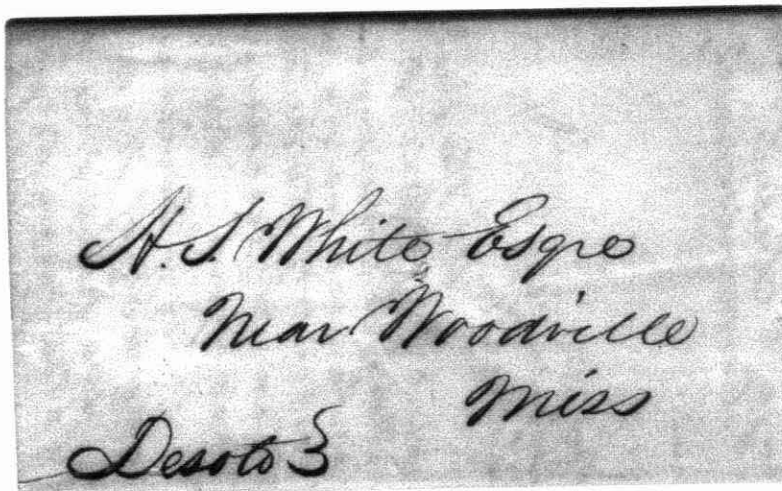 H. S. White Esqre
Near Woodville
Miss
Desoto }